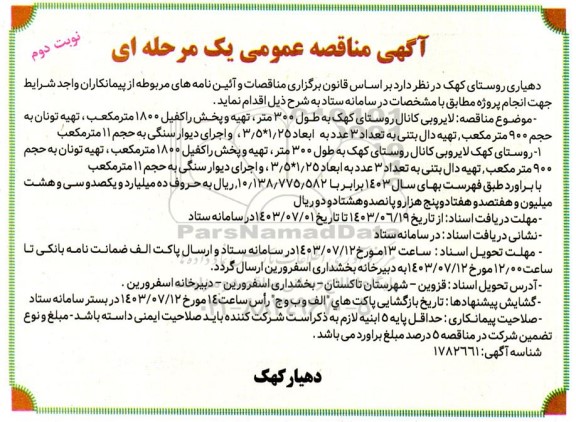 آگهی مناقصه عمومی یک مرحله ای
نوبت دوم
دهیاری روستای کهک در نظر دارد بر اساس قانون برگزاری مناقصات و آئین نامه های مربوطه از پیمانکاران واجد شرایط
جهت انجام پروژه مطابق با مشخصات در سامانه ستاد به شرح ذیل اقدام نماید.
-موضوع مناقصه: لایروبی کانال روستای کهک به طول 300 متر، تهیه و پخش راکفیل 1800 مترمکعب، تهیه تونان به
حجم 900 متر مکعب, تهیه دال بتنی به تعداد 3 عدد به ابعاد 1/25*3/5، و اجرای دیوار سنگی به حجم 11 مترمکعب
1-روستای کهک لایروبی کانال روستای کهک به طول 300 متر، تهیه و پخش راکفیل 1800 مترمکعب، تهیه تونان به حجم
900 متر مکعب, تهیه دال بتنی به تعداد 3 عدد به ابعاد 1/25*3/5، و اجرای دیوار سنگی به حجم 11 مترمکعب
با برآورد طبق فهرست بهای سال 1403 برابر با 10/138,775,582, ریال به حروف ده میلیارد و یکصد و سی و هشت
میلیون و هفتصد و هفتاد و پنج هزار و پانصد و هشتاد و دو ریال
-مهلت دریافت اسناد: از تاریخ 1403/06/19 تا تاریخ 1403/07/01 در سامانه ستاد
-نشانی دریافت اسناد: در سامانه ستاد
-مهلت تحویل اسناد: ساعت 13 مورخ 1403/07/12 در سامانه ستاد و ارسال پاکت الف ضمانت نامه بانکی تا
ساعت 12:00 مورخ 1403/07/12 به دبیرخانه بخشداری اسفرورین ارسال گردد.
-آدرس تحویل اسناد: قزوین - شهرستان تاکستان - بخشداری اسفرورین - دبیرخانه اسفرورین.
-گشایش پیشنهادها: تاریخ بازگشایی پاکت های "الف و ب و ج" رأس ساعت 14 مورخ 1403/07/12 در بستر سامانه ستاد
-صلاحیت پیمانکاری: حداقل پایه 5 ابنیه لازم به ذکر است شرکت کننده باید صلاحیت ایمنی داشته باشد- مبلغ و نوع
تضمین شرکت در مناقصه 5 درصد مبلغ برآورد می باشد.
شناسه آگهی: 1782661
دهیار کهک
ParsNamadData